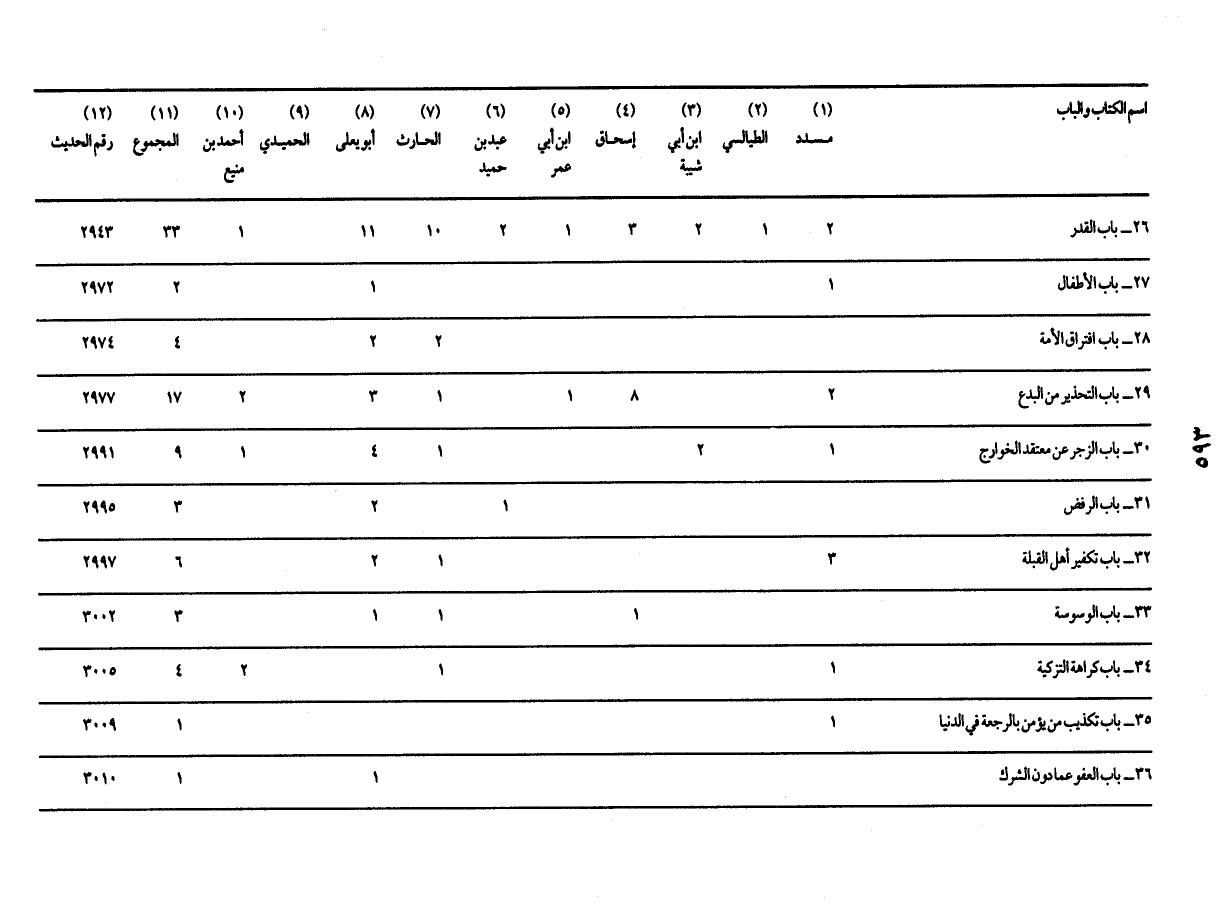 اسم الكتاب والباب (١) (٢) (٣) (٤) (٥) (٦) (٧) (٨) (٩) (١٠) (١١) (١٢)
مسدد الطيالسي ابن أبي إسحاق ابن أبي عبد بن الحارث أبو يعلى الحميدي أحمد بن المجموع رقم الحديث
شيبة عمر حميد منيع
٢٦ــ باب القدر ٢ ١ ٢ ٣ ١ ٢ ١٠ ١١ ١ ٣٣ ٢٩٤٣
٢٧ــ باب الأطفال ١ ١ ٢ ٢٩٧٢
٢٨ــ باب افتراق الأمة ٢ ٢ ٤ ٢٩٧٤
٢٩ــ باب التحذير من البدع ٢ ٨ ١ ١ ٣ ٢ ١٧ ٢٩٧٧
٣٠ــ باب الزجر عن معتقد الخوارج ١ ٢ ١ ٤ ١ ٩ ٢٩٩١
٣١ــ باب الرفض ١ ٢ ٣ ٢٩٩٥
٣٢ــ باب تكفير أهل القبلة ٣ ١ ٢ ٦ ٢٩٩٧
٣٣ــ باب الوسوسة ١ ١ ١ ٣ ٣٠٠٢
٣٤ــ باب كراهة التزكية ١ ١ ٢ ٤ ٣٠٠٥
٣٥ــ باب تكذيب من يؤمن بالرجعة في الدنيا ١ ١ ٣٠٠٩
٣٦ــ باب العفو عما دون الشرك ١ ١ ٣٠١٠
٥٩٣